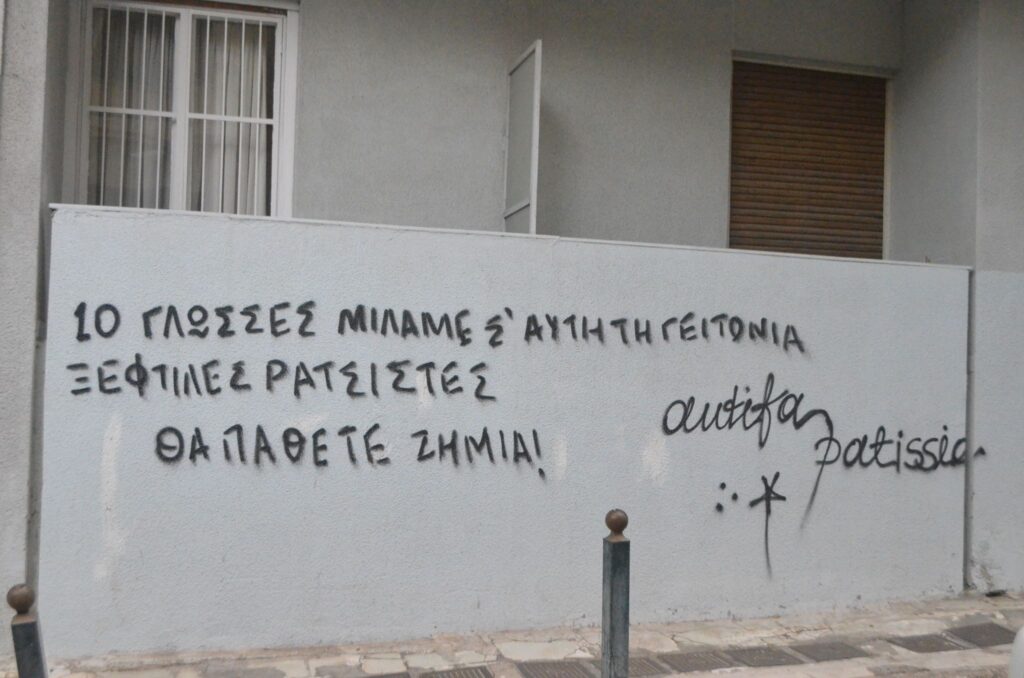 10 ΓΛΩΣΣΕΣ ΜΙΛΑΜΕ Σ' ΑΥΤΗ ΤΗ ΓΕΙΤΟΝΙΑ
ΞΕΦΤΙΛΕΣ ΡΑΤΣΙΣΤΕΣ
ΘΑ ΠΑΘΕΤΕ ΖΗΜΙΑ!
antifa
patissia